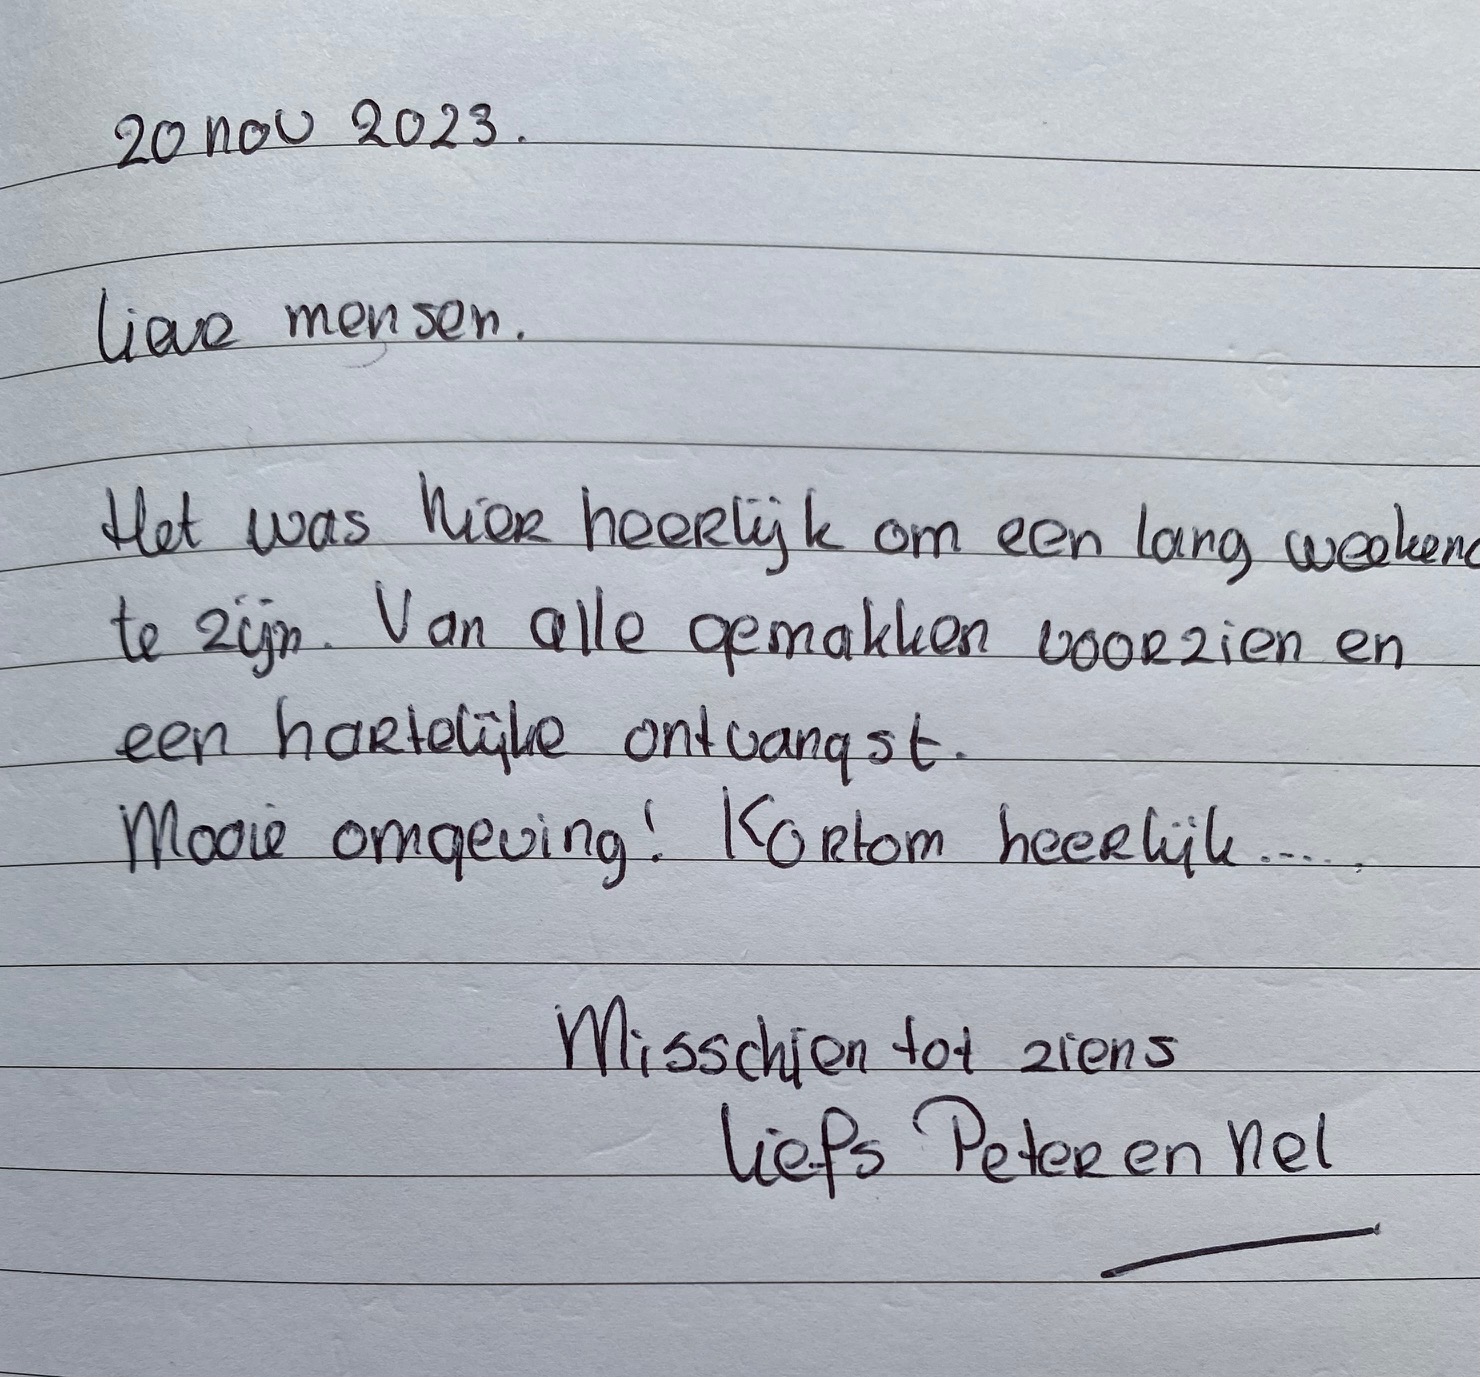 20 nov 2023.
lieve mensen.
Het was hier heerlijk om een lang weekend
te zijn. Van alle gemakken voorzien en
een hartelijke ontvangst.
Mooie omgeving! Kortom heerlijk.....
Misschien tot ziens
liefs Peter en Nel